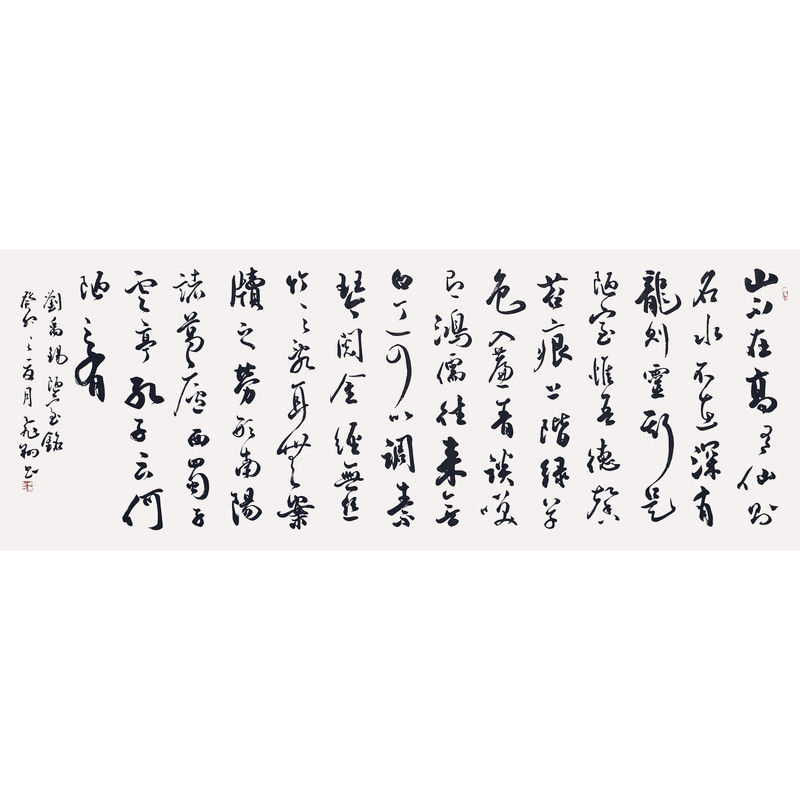 山不在高有仙则
名水不在深有
龍则靈斯是
陋室惟吾德馨
苔痕上階绿草
色入簾青談笑
有鴻儒往来無
白丁可以調素
琴閱金經無丝
竹之亂耳無案
牘之勞形南陽
諸葛廬西蜀子
雲亭孔子云何
陋之有
劉禹錫陋室銘
癸卯之夏月书